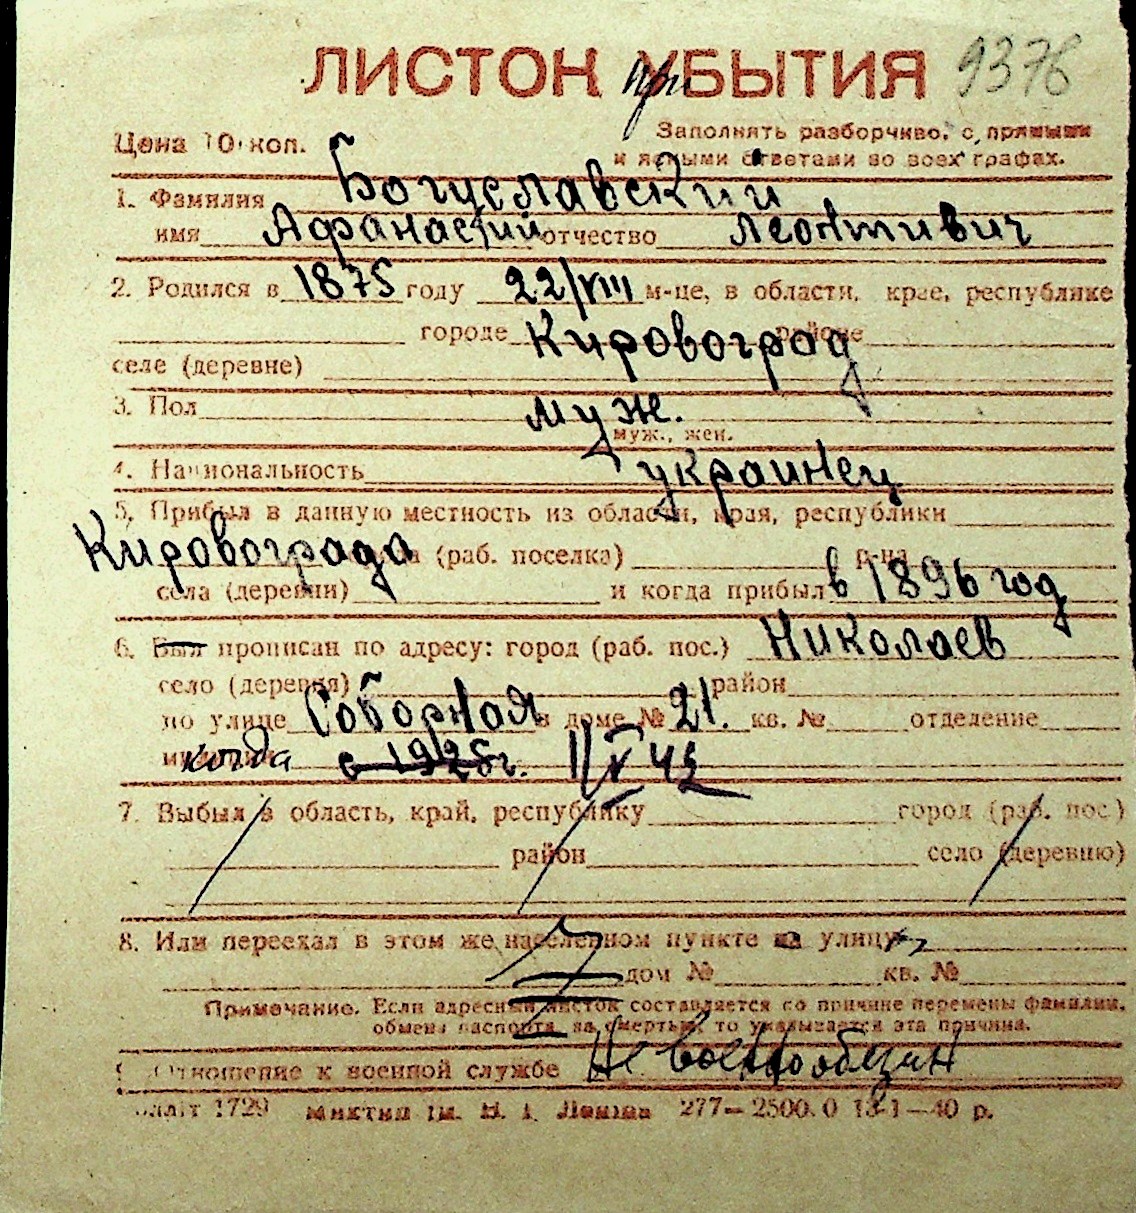 ЛИСТОК при БЫТИЯ 9376
Цена 10 коп.
Заполнять разборчиво, с прямыми
и ясными ответами во всех графах.
1. Фамилия Богуславский
имя Афанасий отчество Леонтивич
2. Родился в 1875 году 22/VIII м-це, в области, крае, республике
городе Кировоград районе
селе (деревне)
3. Пол муж.
муж., жен.
4. Национальность украинец
5. Прибыл в данную местность из области, края, республики
Кировограда (раб. поселка) р-на
села (деревни) и когда прибыл в 1896 год
6. Был прописан по адресу: город (раб. пос.) Николаев
село (деревня) район
по улице Соборная в доме № 21. кв. № отделение
когда с 1925г. 1/V 43
7. Выбыл в область, край, республику город (раб. пос.)
район село (деревню)
8. Или переехал в этом же населенном пункте на улицу
дом № кв. №
Примечание. Если адресный листок составляется по причине перемены фамилии,
обмена паспорта, за смертью, то указывается эта причина.
Отношение к военной службе Не военнообязан
1729 им. В. И. Ленина 277—2500.0 13-1—40 р.